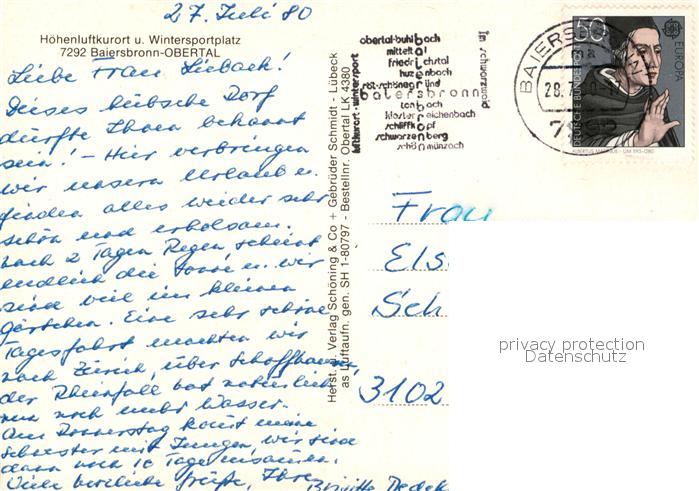 27. Juli 80
Höhenluftkurort u. Wintersportplatz
7292 Baiersbronn-OBERTAL
Liebe Frau Liebach!
Dieses hübsche Dorf
dürfte Ihnen bekannt
sein! - Hier verbringen
wir unseren Urlaub u.
finden alles wieder sehr
schön und erholsam.
Nach 2 Tagen Regen scheint
endlich die Sonne u. wir
sind viel im kleinen
Gärtchen. Eine sehr schöne
Tagesfahrt machten wir
nach Zürich, über Schaffhausen,
der Rheinfall hat natürlich
nun noch mehr Wasser.
Am Donnerstag kommt meine
Schwester mit Jungen, wir sind
dann noch 10 Tage zusammen.
Viele herzliche Grüße, Ihre
Brigitte
Herst. u. Verlag Schöning & Co + Gebrüder Schmidt - Lübeck
as Luftaufn. gen. SH 1-80797 - Bestellnr. Obertal LK 4380
obertal-buhlbach
mitteltal
friedrichstal
huzenbach
röt-schönegründ
baiersbronn
tonbach
klosterreichenbach
schliffkopf
schwarzenberg
schönmünzach
luftkurort-wintersport
im schwarzwald
BAIERSBRONN
28.7.80
7292
50
DEUTSCHE BUNDESPOST
EUROPA
CEPT
ALBERTUS MAGNUS · UM 1193-1280
Frau
Els
Sch
3102
privacy protection
Datenschutz